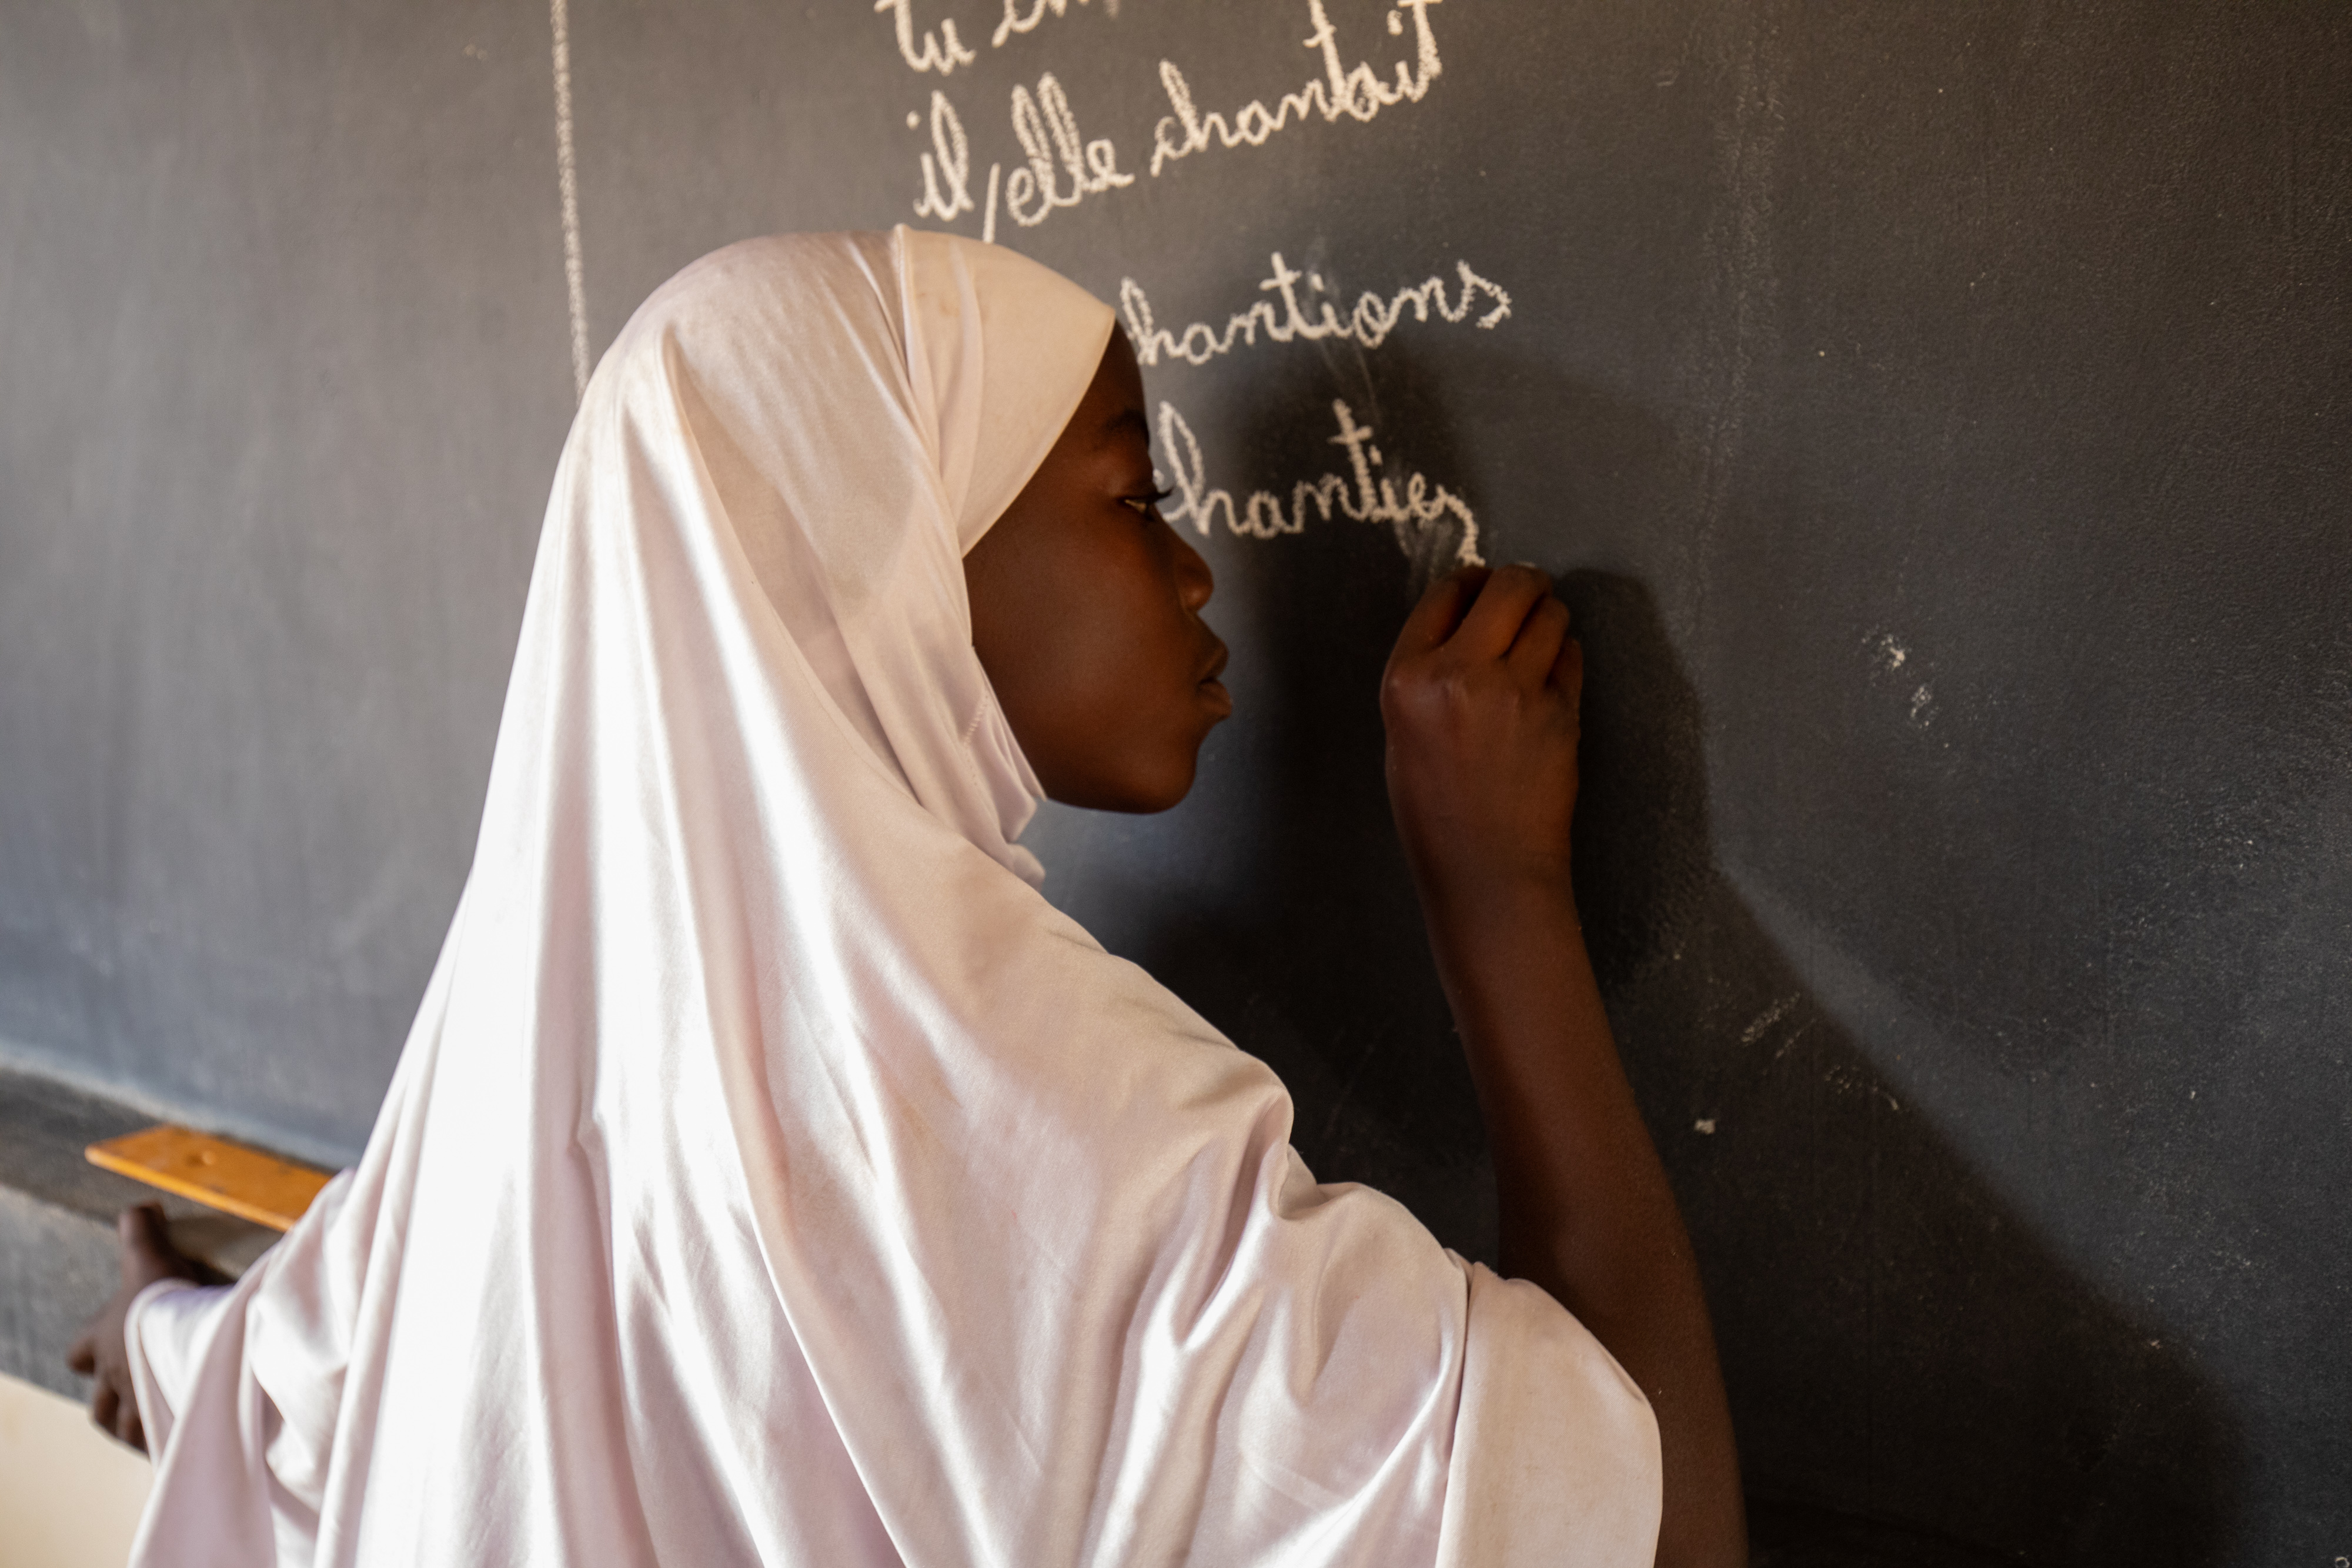 tu
il/elle chantait
hantions
hantiez